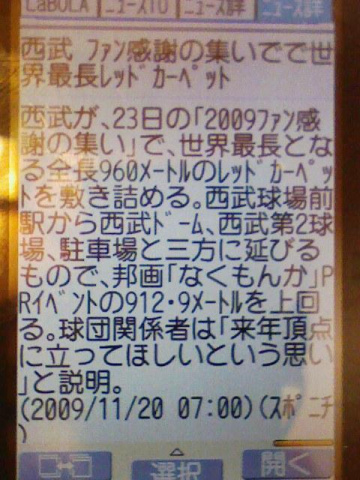 LaBOLA ﾆｭｰｽTO ﾆｭｰｽ詳 ﾆｭｰｽ詳
西武 ﾌｧﾝ感謝の集いでで世
界最長ﾚｯﾄﾞｶｰﾍﾟｯﾄ
西武が､23日の｢2009ﾌｧﾝ感
謝の集い｣で､世界最長とな
る全長960ﾒｰﾄﾙのﾚｯﾄﾞｶｰﾍﾟｯ
ﾄを敷き詰める｡西武球場前
駅から西武ﾄﾞｰﾑ､西武第2球
場､駐車場と三方に延びる
もので､邦画｢なくもんか｣P
Rｲﾍﾞﾝﾄの912･9ﾒｰﾄﾙを上回
る｡球団関係者は｢来年頂点
に立ってほしいという思い
｣と説明｡
(2009/11/20 07:00)(ｽﾎﾟﾆﾁ
)
選択 開く